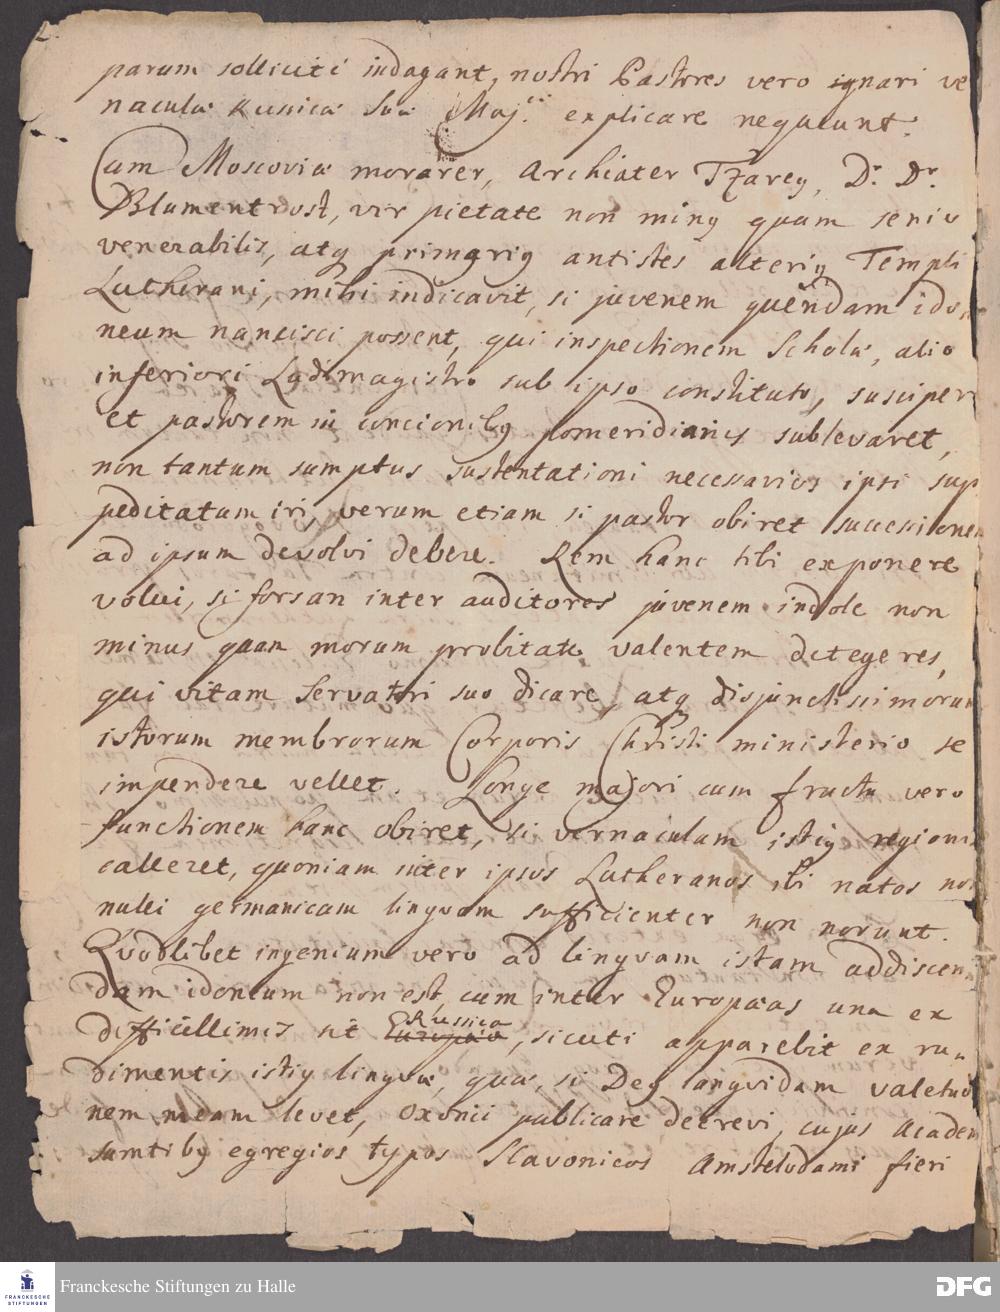 parum solliciti indagant, nostri Pastores vero ignari ve
naculæ Russicæ Suæ Maj. explicare nequeunt.
Cum Moscoviæ morarer, Archiater Tzareg, Dr. Dr.
Blumentrost, vir pietate non ming quam senio
venerabilis, atq primarig antistes alterig Templi
Lutherani, mihi indicavit, si juvenem quendam ido
neum nancisci possent, qui inspectionem Scholæ, alio
inferiori Lydimagistro sub ipso constituto, susciper
et pastorem in concionibg pomeridianis sublevaret,
non tantum sumptus sustentationi necessarios ipsi sup
peditatum iri, verum etiam si pastor obiret successionem
ad ipsum devolvi debere. Rem hanc tibi exponere
volui, si forsan inter auditores juvenem indole non
minus quan morum probitate valentem detegeres,
qui vitam Servatori suo dicare, atq disjunctissimorum
istorum membrorum Corporis Christi ministerio se
impendere vellet. Longe majori cum fructu vero
functionem hanc obiret, si vernaculam istig regionis
calleret, quoniam inter ipsos Lutheranos ibi natos non
nulli germanicam linguam sufficienter non norunt.
Quodlibet ingenium vero ad linguam istam addiscen
dam idoneum non est, cum inter Europæas una ex
difficillimis sit Russica Europæa, sicuti apparebit ex ru
dimentis istig linguæ, quæ, si Deg languidam valetudi
nem meam levet, Oxonii publicare decrevi, cujus Academ
sumtibg egregios typos Slavonicos Amstelodami fieri
FRANCKESCHE STIFTUNGEN
Franckesche Stiftungen zu Halle
DFG